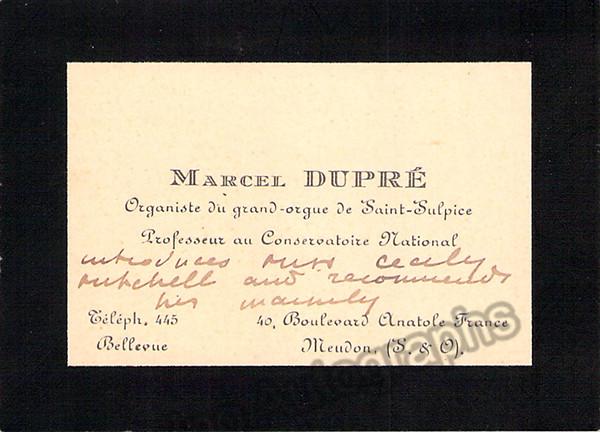 MARCEL DUPRÉ
Organiste du grand-orgue de Saint-Sulpice
Professeur au Conservatoire National
introduces Miss Cecily
Mitchell and recommends
her
Téléph. 445
40, Boulevard Anatole France
Bellevue
Meudon, (S. & O).